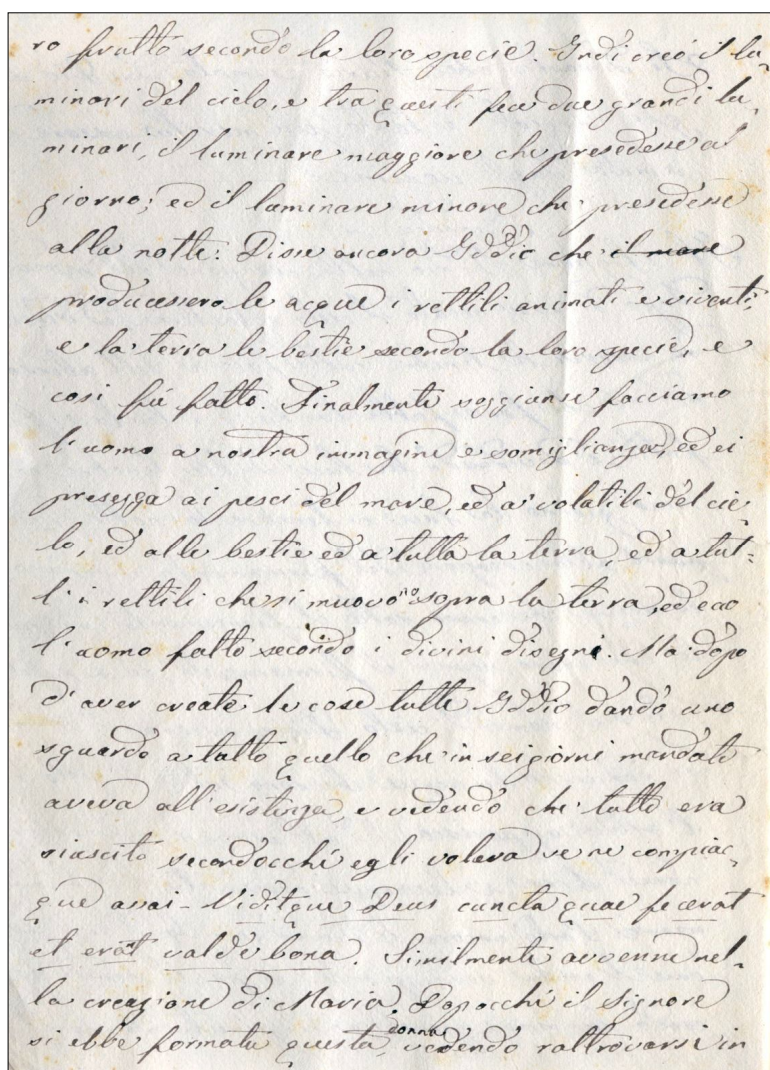 ro frutto secondo la loro specie. Indi creò i lu-
minari del cielo, e tra questi fece due grandi lu-
minari, il luminare maggiore che presedesse al
giorno; ed il luminare minore che presedesse
alla notte: Disse ancora Iddio che il mare
producessero le acque i rettili animati e viventi,
e la terra le bestie secondo la loro specie, e
così fù fatto. Finalmente soggiunse facciamo
l'uomo a nostra immagine e somiglianza, ed ei
presegga ai pesci del mare, ed a' volatili del cie-
lo, ed alle bestie ed a tutta la terra, ed a tut-
t'i rettili che si muovono sopra la terra, ed ecco
l'uomo fatto secondo i divini disegni. Ma dopo
d'aver create le cose tutte Iddio dando uno
sguardo a tutto quello che in sei giorni mandato
aveva all'esistenza, e vedendo che tutto era
riuscito secondocchè egli voleva se ne compiac-
que assai - Viditque Deus cuncta quae fecerat
et erant valde bona. Similmente avvenne nel-
la creazione di Maria. Dopocchè il Signore
si ebbe formata questa donna, vedendo rattrovarsi in